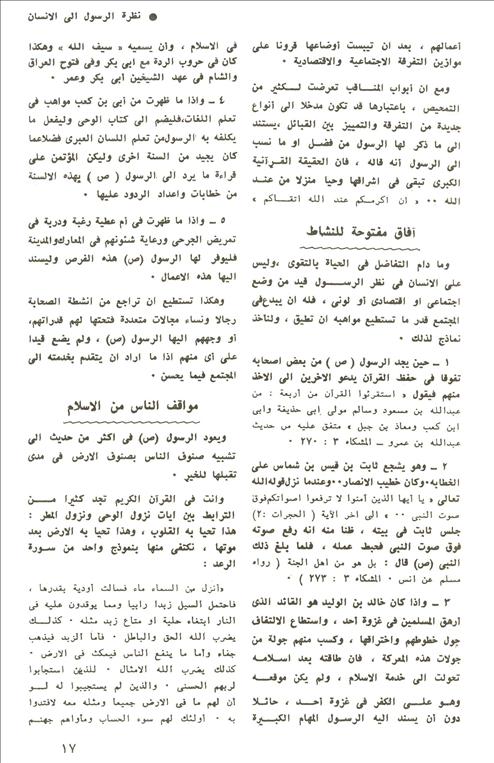 نظرة الرسول الى الانسان ●
أعمالهم ، بعد ان تيبست أوضاعها قرونا على
موازين التفرقة الاجتماعية والاقتصادية ٠
ومع ان أبواب المناقب تعرضت لكثير من
التمحيص ، باعتبارها قد تكون مدخلا الى أنواع
جديدة من التفرقة والتمييز بين القبائل ،يستند
الى ما ذكر لها الرسول من فضل او ما نسب
الى الرسول أنه قاله ، فان الحقيقة القرآنية
الكبرى تبقى في اشراقها وحيا منزلا من عند
الله ٠٠ « ان اكرمكم عند الله اتقاكم »
آفاق مفتوحة للنشاط
وما دام التفاضل في الحياة بالتقوى ،وليس
على الانسان في نظر الرسول قيد من وضع
اجتماعي او اقتصادى أو لونى ، فله ان يبدع فى
المجتمع قدر ما تستطيع مواهبه ان تطيق ، ولناخذ
نماذج لذلك ٠
١ – حين يجد الرسول ( ص ) من بعض اصحابه
تفوقا في حفظ القرآن يدعو الآخرين الى الاخذ
منهم فيقول « استقرئوا القرآن من أربعة : من
عبدالله بن مسعود وسالم مولى ابى حذيفة وابى
ابن كعب ومعاذ بن جبل » متفق عليه من حديث
عبدالله بن عمرو – المشكاه ٣ : ٢٧٠ ٠
٢ – وهو يشجع ثابت بن قيس بن شماس على
الخطابه٠وكان خطيب الانصار٠وعندما نزل قوله الله
تعالى « يا أيها الذين آمنوا لا ترفعوا اصواتكم فوق
صوت النبى ٠٠ » الى اخر الآية ( الحجرات :٢)
جلس ثابت في بيته ، ظنا منه انه رفع صوته
فوق صوت النبى فحبط عمله ، فلما بلغ ذلك
النبى (ص) قال : بل هو من اهل الجنة ( رواه
مسلم عن انس ٠ المشكاه ٣ : ٢٧٣ ) ٠
٣ – واذا كان خالد بن الوليد هو القائد الذى
أرهق المسلمين في غزوة أحد ، واستطاع الالتفاف
حول خطوطهم واختراقها ، وكسب منهم جولة من
جولات هذه المعركة ، فان طاقته بعد اسلامه
تحولت الى خدمة الاسلام ، ولم يكن موقعه
وهو على الكفر في غزوة أحد ، حائلا
دون أن يسند اليه الرسول المهام الكبيرة
فى الاسلام ، وأن يسميه « سيف الله » وهكذا
كان فى حروب الردة مع ابى بكر وفى فتوح العراق
والشام فى عهد الشيخين أبى بكر وعمر ٠
٤ – واذا ما ظهرت من أبى بن كعب مواهب فى
تعلم اللغات،فليضم الى كتاب الوحى وليفعل ما
يكلفه به الرسول من تعلم اللسان العبرى فضلا عما
كان يجيد من السنة اخرى وليكن المؤتمن على
قراءة ما يرد الى الرسول ( ص ) بهذه الالسنة
من خطابات واعداد الردود عليها ٠
٥ – واذا ما ظهرت فى أم عطية رغبة ودربة فى
تمريض الجرحى ورعاية شئونهم فى المعارك والمدينة
فليوفر لها الرسول (ص) هذه الفرص وليسند
اليها هذه الاعمال ٠
وهكذا تستطيع ان تراجع من انشطة الصحابة
رجالا ونساء مجالات متعددة فتحتها لهم قدراتهم،
أو وجههم اليها الرسول (ص) ، ولم يضع قيدا
على أى منهم اذا ما اراد ان يتقدم بخدمته الى
المجتمع فيما يحسن ٠
مواقف الناس من الاسلام
ويعود الرسول (ص) فى اكثر من حديث الى
تشبيه صنوف الناس بصنوف الارض فى مدى
تقبلها للخير ٠
وانت فى القرآن الكريم تجد كثيرا من
الترابط بين ايات نزول الوحى ونزول المطر :
هذا تحيا به القلوب ، وهذا تحيا به الارض بعد
موتها ، نكتفى منها بنموذج واحد من سورة
الرعد :
«أنزل من السماء ماء فسالت أودية بقدرها ،
فاحتمل السيل زبدا رابيا ومما يوقدون عليه فى
النار ابتغاء حلية او متاع زبد مثله ٠ كذلك
يضرب الله الحق والباطل ٠ فأما الزبد فيذهب
جفاء وأما ما ينفع الناس فيمكث فى الارض ٠
كذلك يضرب الله الامثال ٠ للذين استجابوا
لربهم الحسنى ٠ والذين لم يستجيبوا له لو
أن لهم ما فى الارض جميعا ومثله معه لافتدوا
به ٠ أولئك لهم سوء الحساب ومأواهم جهنم
١٧